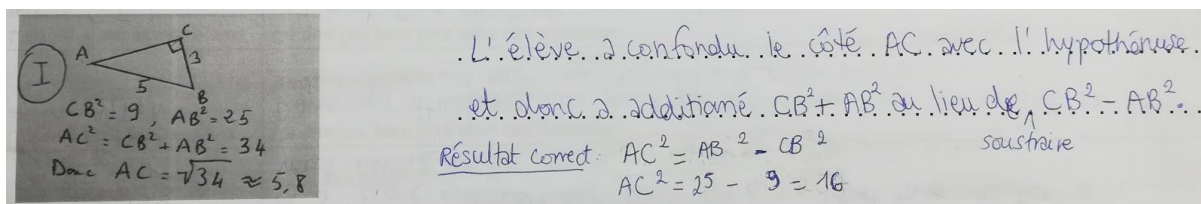 I
A
C
3
5
B
CB² = 9 , AB² = 25
AC² = CB² + AB² = 34
Donc AC = √34 ≈ 5,8
L'élève a confondu le côté AC avec l'hypothénuse
et donc a additionné CB² + AB² au lieu de soustraire CB² - AB².
Résultat correct: AC² = AB² - CB²
AC² = 25 - 9 = 16